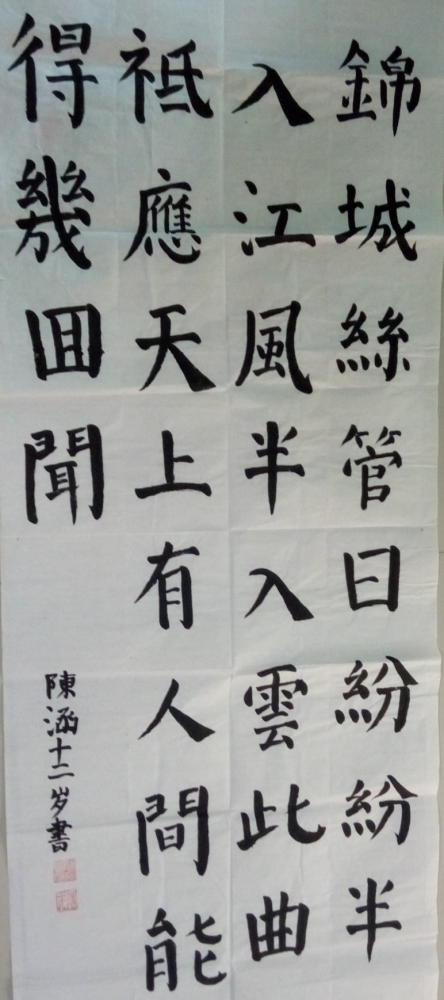 錦城絲管日紛紛半
入江風半入雲此曲
祗應天上有人間能
得幾囬聞
陳涵十二岁書